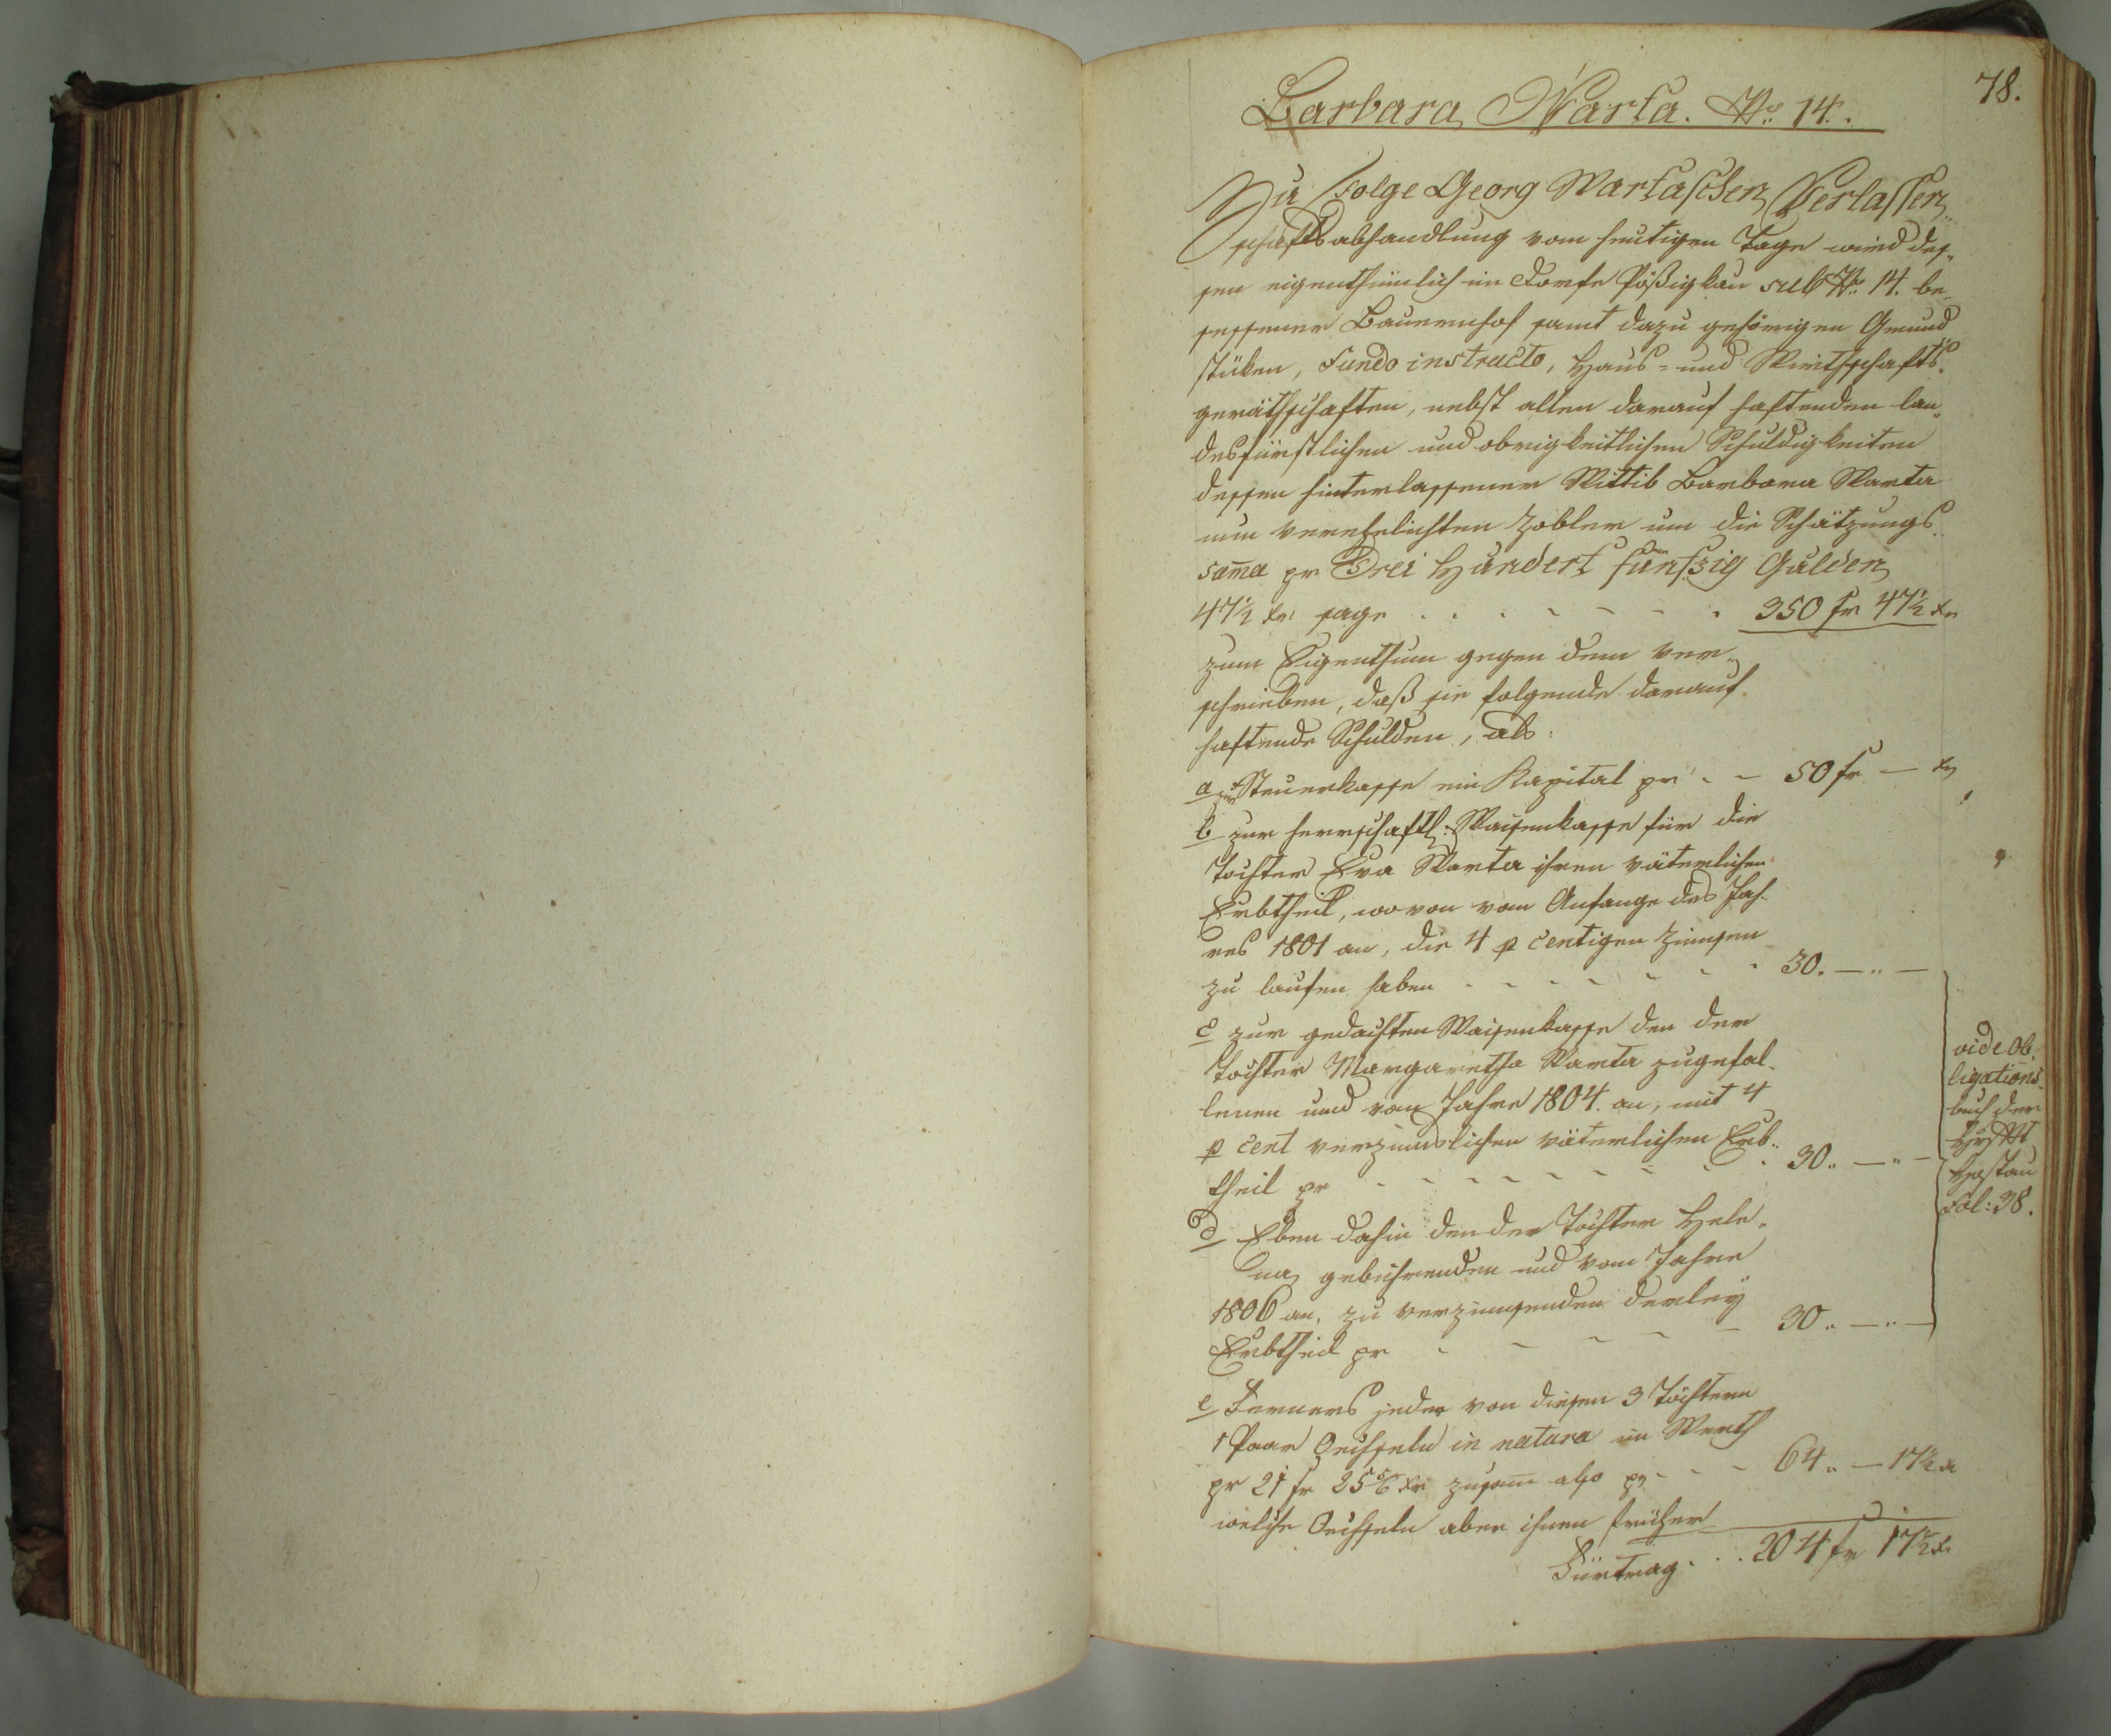 78.
Barbara Warta. No. 14.
Zu Folge Georg Wartaschen Verlassen„
schaftsabhandlung vom heutigen Tage wird des„
sen eigenthümlich im Dorfe Pößigkau sub No. 14. be„
sessener Bauernhof samt dazu gehörigen Grund
stüken, Fundo instructo, Haus- und Wirthschafts„
geräthschaften, nebst allen darauf haftenden lan„
desfürstlichen und obrigkeitlichen Schuldigkeiten
dessen hinterlassener Wittib Barbara Warta
nun verehelichten Zobler um die Schätzungs„
sum̄a pr Drei Hundert fünfzig Gulden
47½ kr sage . . . . . . . 350 fr 47½ kr
zum Eigenthum gegen dem ver„
schrieben, daß sie folgende darauf
haftende Schulden, als:
a zur Steuerkasse ein Kapital pr . - - 50 fr — kr
b zur herrschaftl: Waisenkasse für die
Tochter Eva Warta ihren väterlichen
Erbtheil, wovon vom Anfange des Jah„
res 1801 an, die 4 p Centigen Zinnsen
zu laufen haben - - - - - - - 30. — .. —
c zur gedachten Waisenkasse den der
Tochter Margaretha Warta zugefal„
lenen und vom Jahre 1804. an, mit 4
p Cent verzinnslichen väterlichen Erb„
theil pr - - - - - - - 30 .. — .. —
d Eben dahin den der Tochter Hele„
na gebührenden und vom Jahre
1806 an, zu verzinnsenden derleÿ
Erbtheil pr - - - - - 30 .. — .. —
vide Ob„
ligations„
buch der
Hostau
Fol: 38.
e Ferners jeder von diesen 3 Töchtern
1 Paar Oechseln in natura im Werth
pr 21 fr 25 5/6 kr zusam̄ also pr - - - 64 .. — 17½ kr
welche Oechseln aber ihnen früher
Fürtrag . . . 204 fr 17½ kr